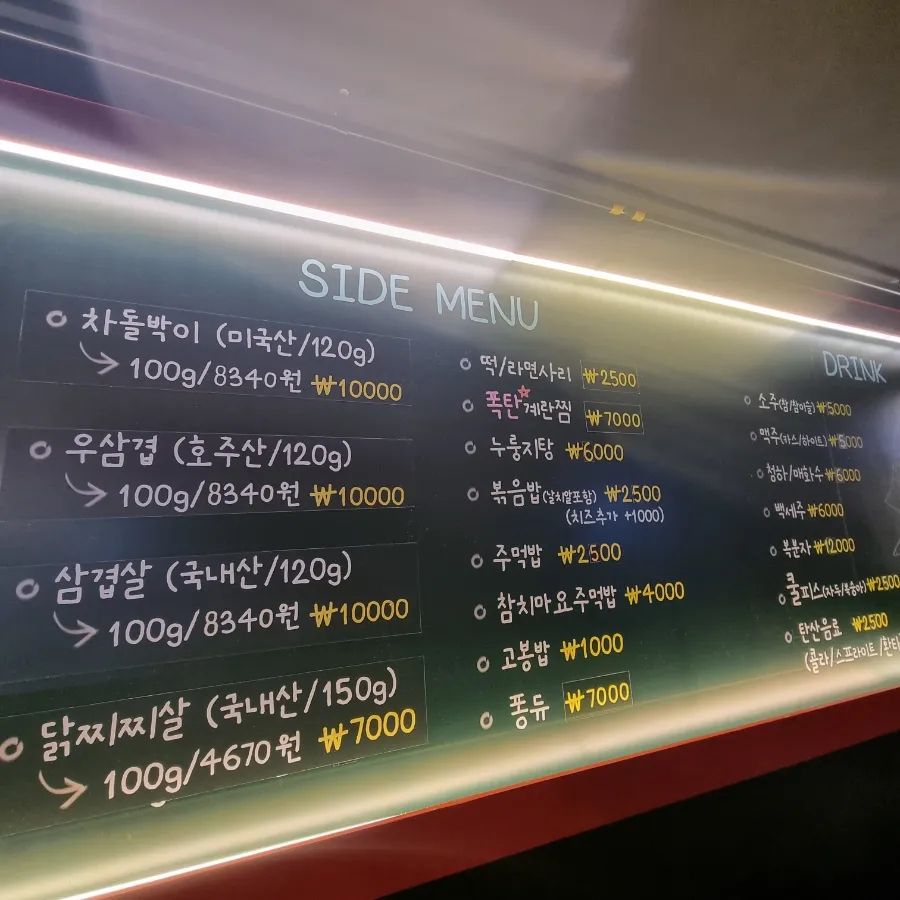 SIDE MENU
차돌박이 (미국산/120g)
100g/8340원 ₩10000
우삼겹 (호주산/120g)
100g/8340원 ₩10000
삼겹살 (국내산/120g)
100g/8340원 ₩10000
닭찌찌살 (국내산/150g)
100g/4670원 ₩7000
떡/라면사리 ₩2500
폭탄계란찜 ₩7000
누룽지탕 ₩6000
볶음밥(날치알포함) ₩2500
(치즈추가 +1000)
주먹밥 ₩2500
참치마요주먹밥 ₩4000
고봉밥 ₩1000
퐁듀 ₩7000
DRINK
소주(참/참이슬) ₩5000
맥주(카스/하이트) ₩5000
청하/매화수 ₩6000
백세주 ₩6000
복분자 ₩12000
쿨피스(자두/복숭아) ₩2500
탄산음료 ₩2500
(콜라/스프라이트/환타